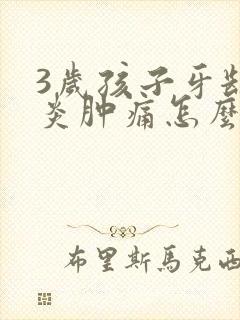 3歲孩子牙
炎肿痛怎麼
布里斯馬克西